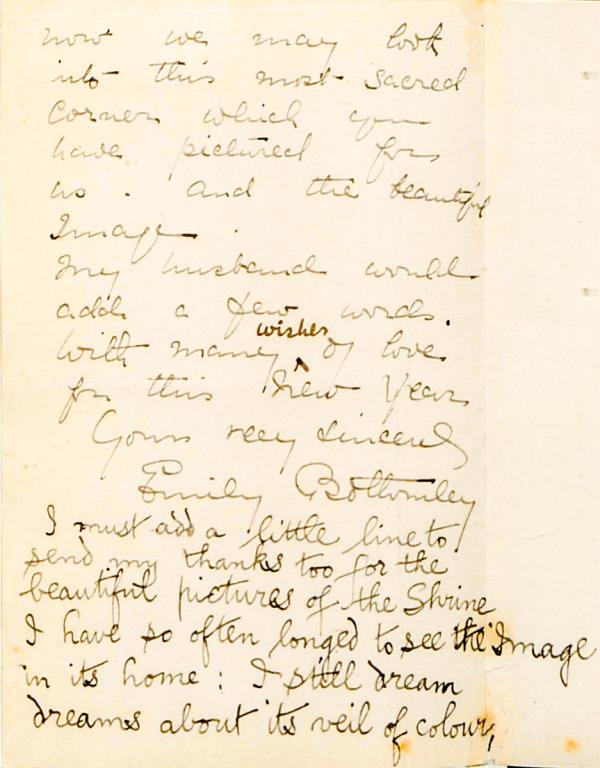 now we may look
into this most sacred
corner which you
have pictured for
us. and the beautiful
Image.
My husband would
add a few words.
With many wishes of love
for this New Year
Yours very sincerely
Emily Bottomley
I must add a little line to
send my thanks too for the
beautiful pictures of the Shrine
I have so often longed to see the Image
in its home: I still dream
dreams about its veil of colour,